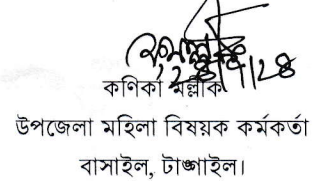 কণিকা মল্লীক
উপজেলা মহিলা বিষয়ক কর্মকর্তা
বাসাইল, টাঙ্গাইল।